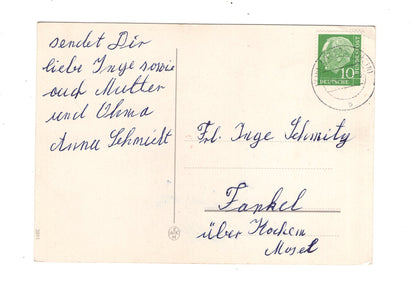 sendet Dir
liebe Inge sowie
auch Mutter
und Ohma
Anna Schmidt
10
DEUTSCHE
BUNDESPOST
Frl. Inge Schmitz
Fankel
über Kochem
Mosel